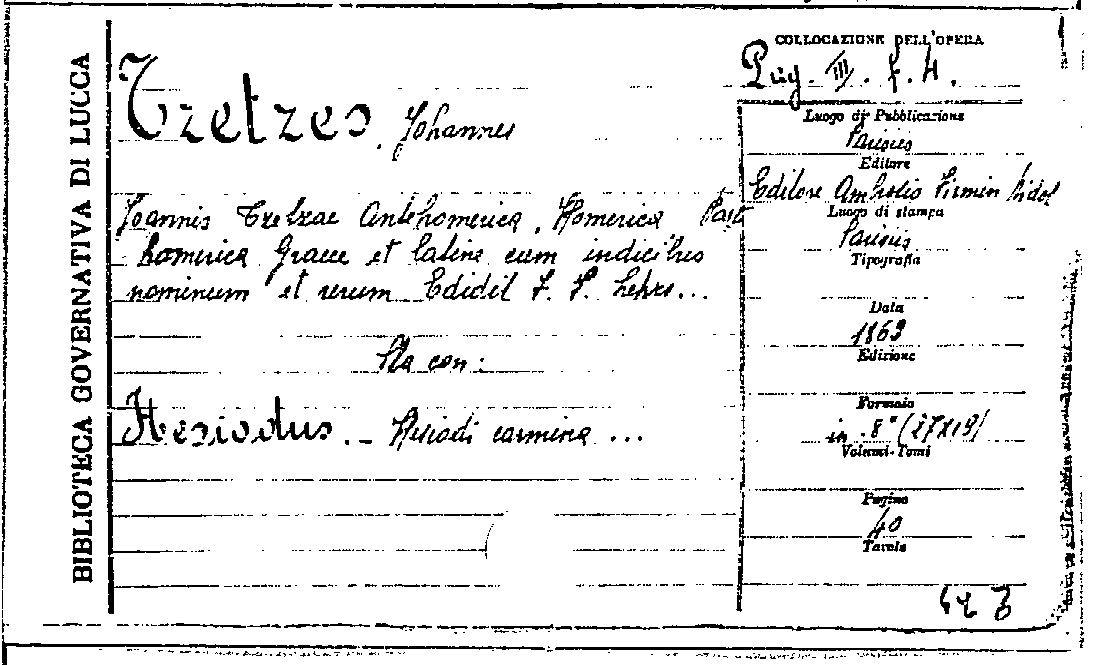 BIBLIOTECA GOVERNATIVA DI LUCCA
COLLOCAZIONE DELL'OPERA
Puy. III. f. 4.
Tzetzes, Johannes
Joannis Tzetzae Antehomerica, Homerica Post
homerica Graece et latine cum indicibus
nominum et rerum Edidit F. S. Lehrs...
Sta con:
Hesiodus. - Hesiodi carmina ...
Luogo di Pubblicazione
Parisiis
Editore
Editore Ambrosio Firmin Didot
Luogo di stampa
Parisiis
Tipografia
Data
1863
Edizione
Formato
in 8° (27X19)
Volumi-Tomi
Pagine
40
Tavole